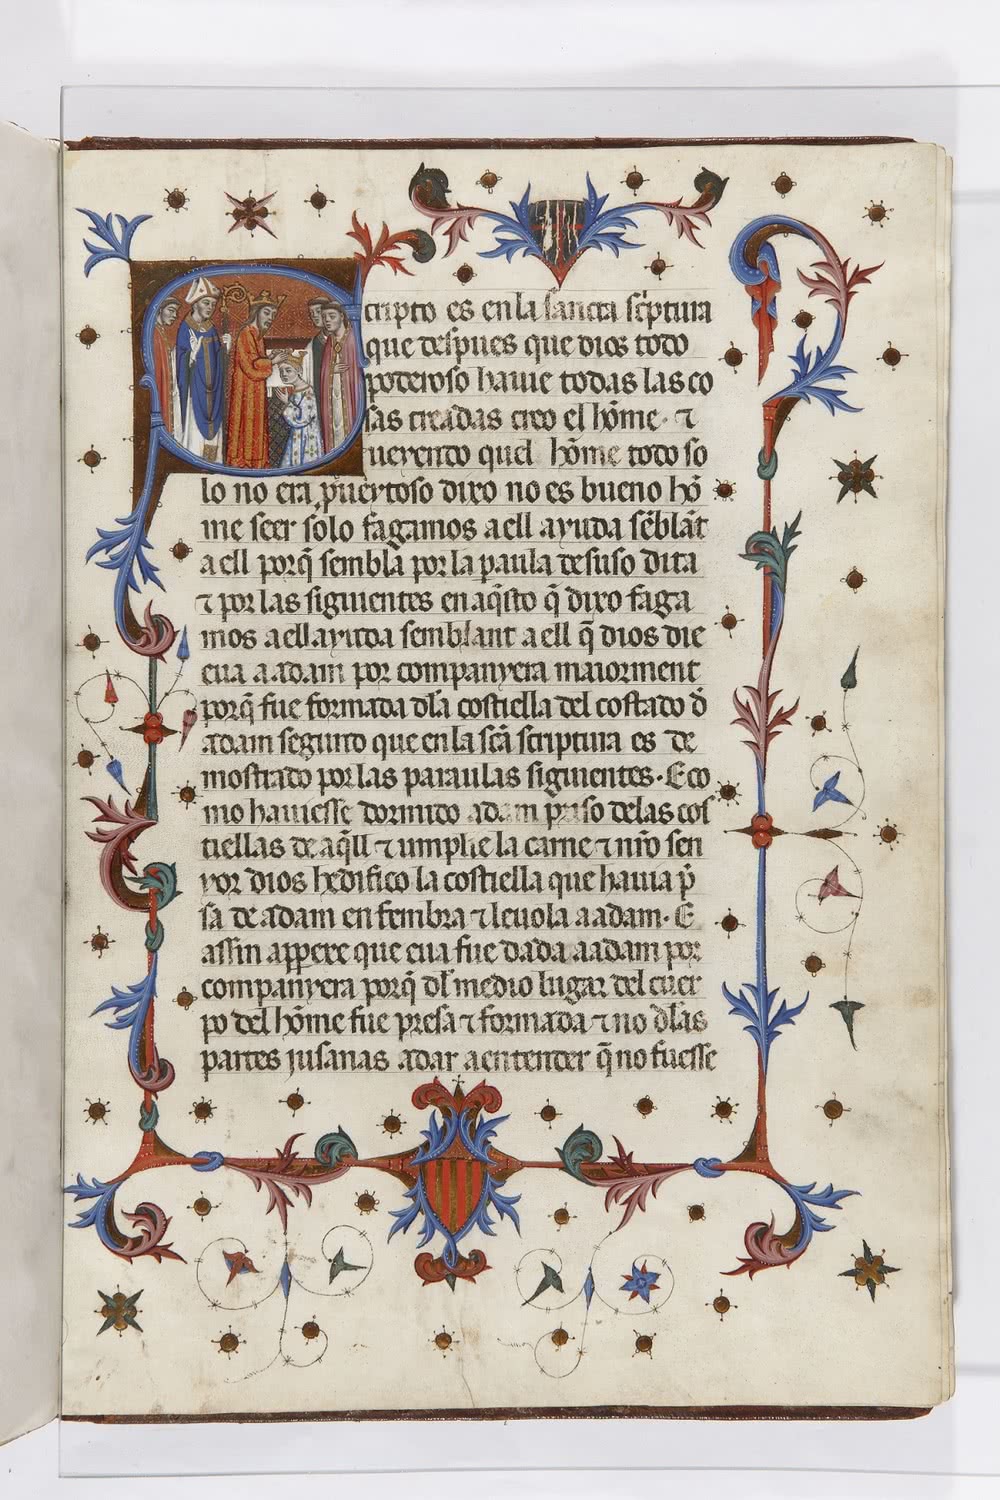 Scripto es en la sancta sc̃ptura
que despues que dios todo
poderoso hauie todas las co
sas creadas creo el hõme · ⁊
ueyendo quel hõme todo so
lo no era puertoso dixo no es bueno hõ
me seer solo fagamos a ell ayuda sẽblãt
a ell porq̃ sembla por la paula desuso dita
⁊ por las siguientes en aq̃sto q̃ dixo faga
mos a ell ayuda semblant a ell q̃ dios die
eua a adam por companyera maiorment
porq̃ fue formada dl̃a costiella del costado d̃
adam seguito que en la scã scriptura es de
mostrado por las paraulas siguientes · E co
mo hauiesse dormido adam priso de las cos
tiellas de aq̃ll ⁊ umplie la carne ⁊ nr̃o sen
yor dios hedifico la costiella que hauia p̃
sa de adam en fembra ⁊ leuola a adam · E
assin appere que eua fue dada a adam por
companyera porq̃ dl̃ medio lugar del cuer
po del hõme fue presa ⁊ formada ⁊ no dl̃as
partes jusanas a dar a entender q̃ no fuesse